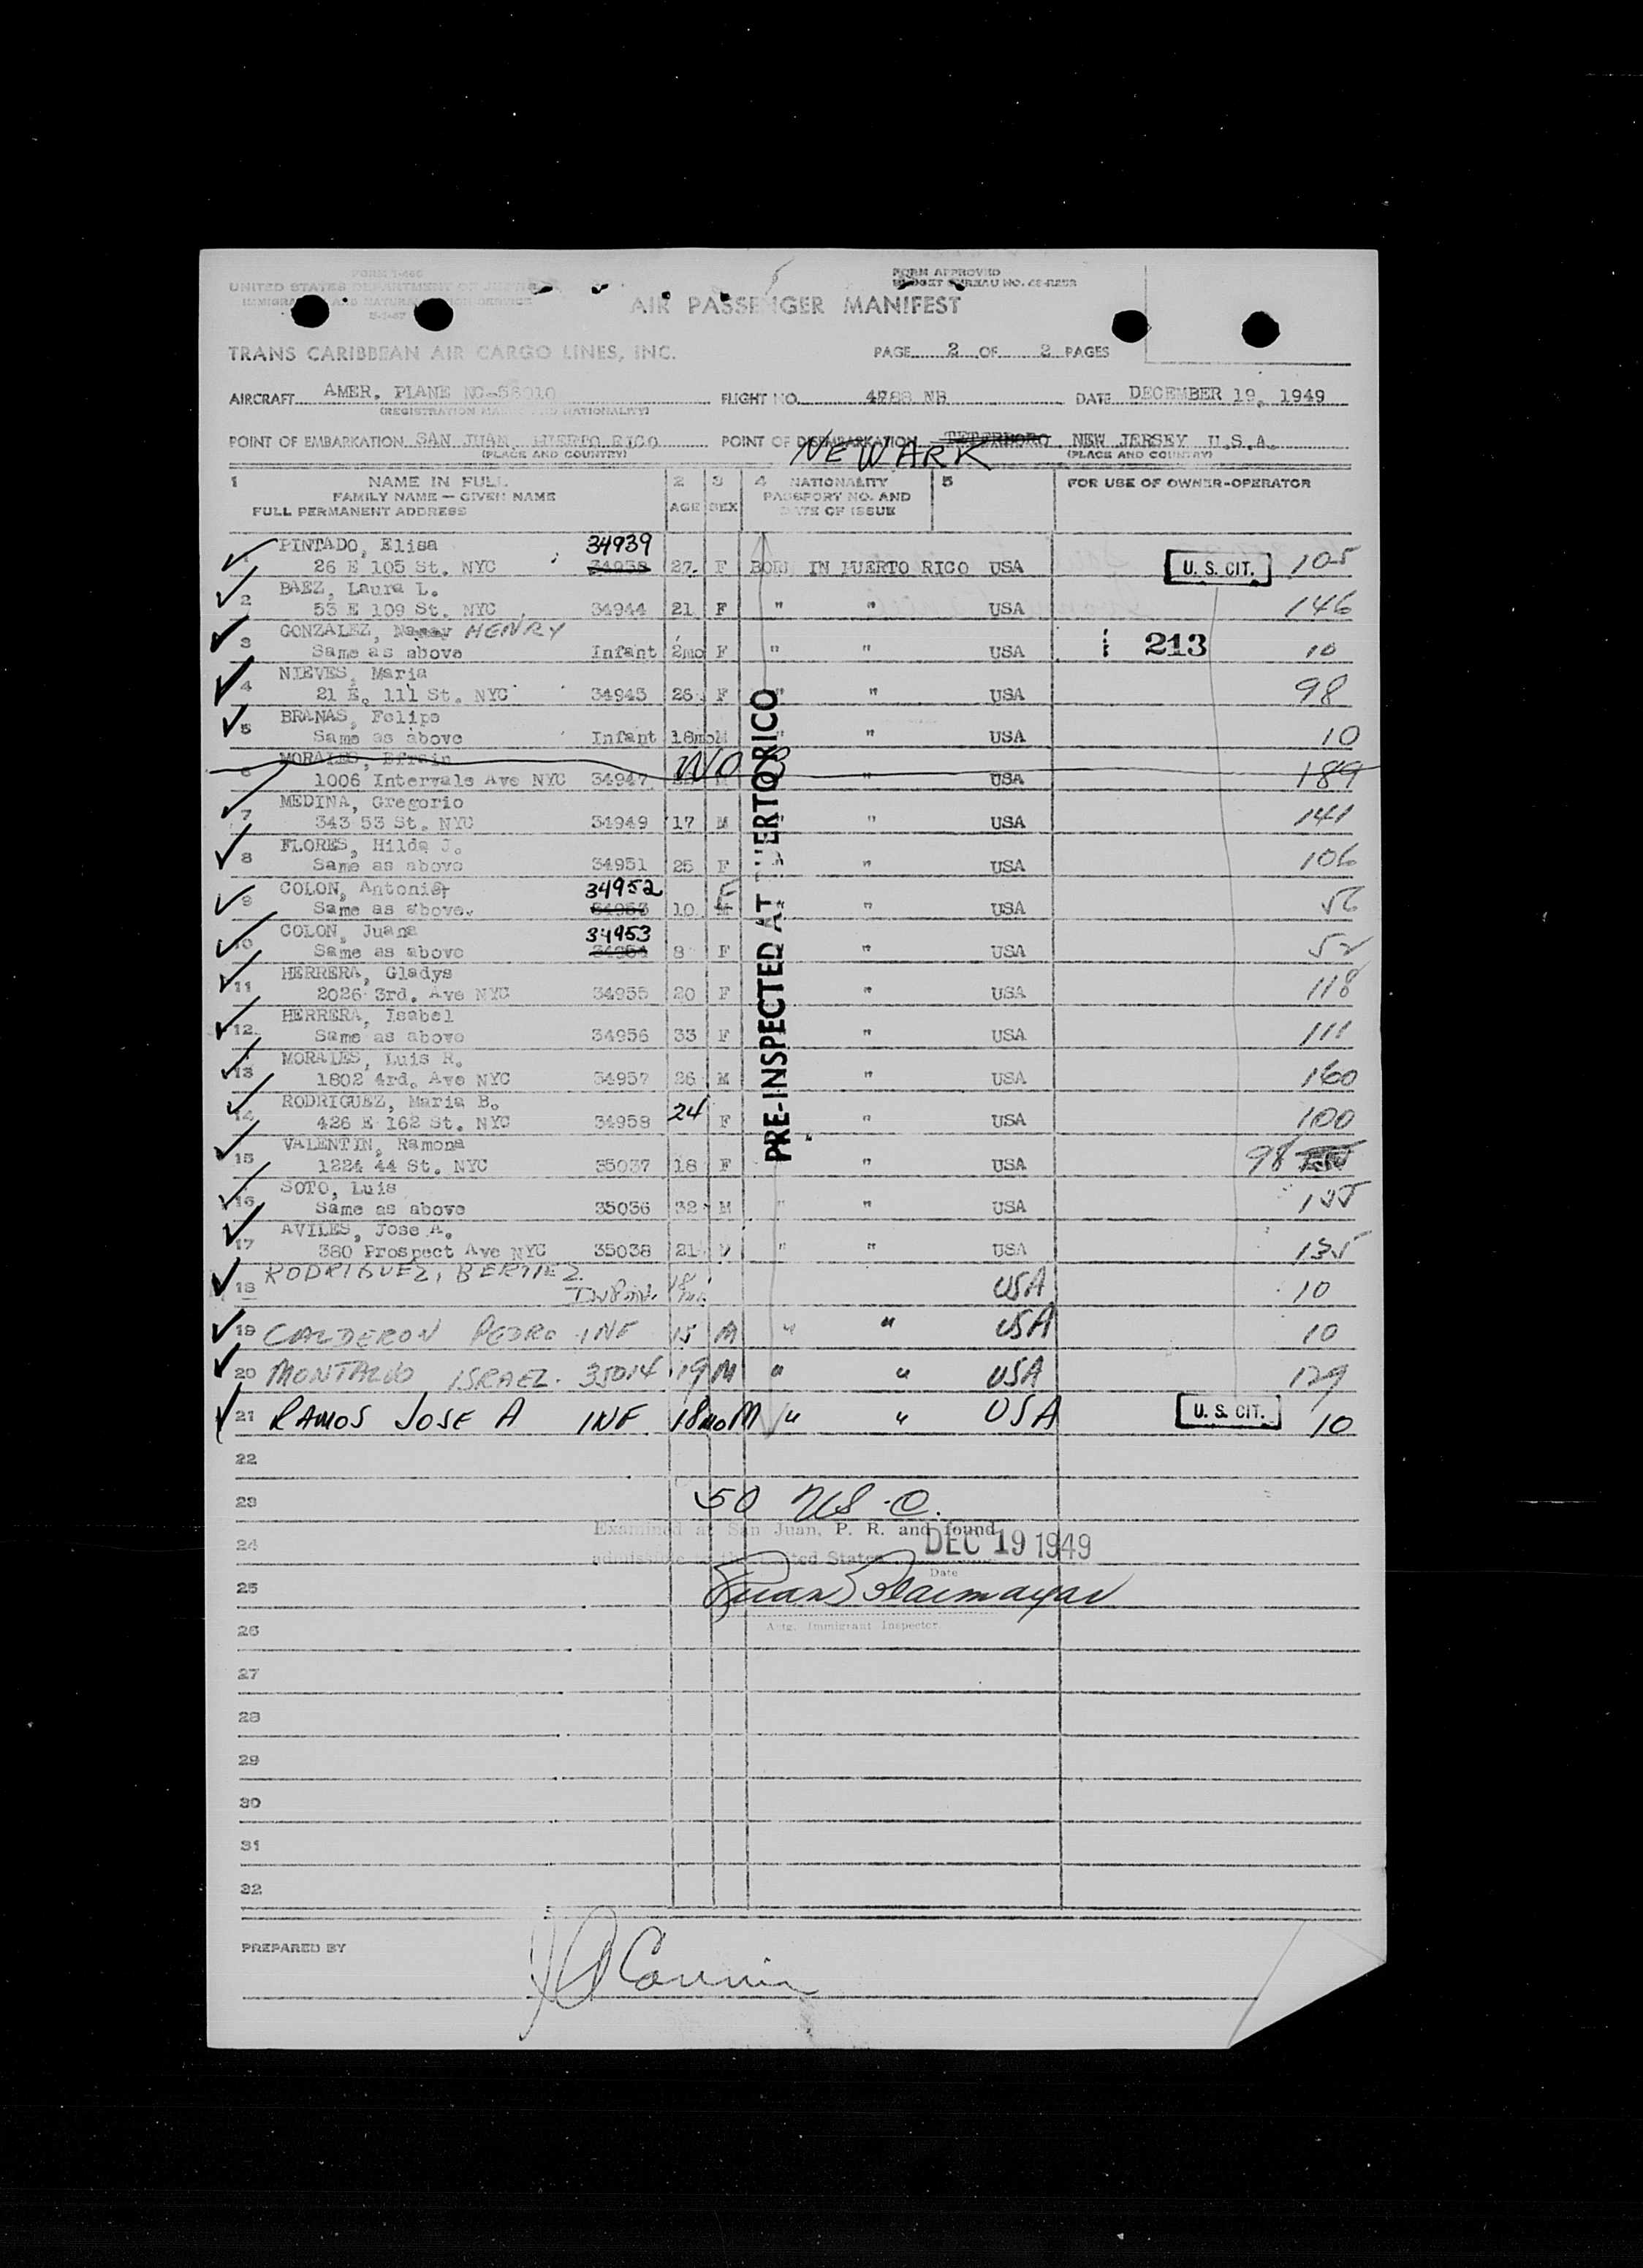 FORM I-466
UNITED STATES DEPARTMENT OF JUSTICE
IMMIGRATION AND NATURALIZATION SERVICE
FORM APPROVED
BUDGET BUREAU NO.
AIR PASSENGER MANIFEST
TRANS CARIBBEAN AIR CARGO LINES, INC.
PAGE 2 OF 2 PAGES
AIRCRAFT AMER. PLANE NC-56010 FLIGHT NO. 4788 NB DATE DECEMBER 19, 1949
(REGISTRATION MARKS AND NATIONALITY)
POINT OF EMBARKATION SAN JUAN, PUERTO RICO POINT OF DISEMBARKATION TETERBORO NEW JERSEY U.S.A.
(PLACE AND COUNTRY) NEWARK (PLACE AND COUNTRY)
1 NAME IN FULL 2 3 4 NATIONALITY 5 FOR USE OF OWNER-OPERATOR
FAMILY NAME — GIVEN NAME AGE SEX PASSPORT NO. AND
FULL PERMANENT ADDRESS DATE OF ISSUE
PINTADO, Elisa 34939
1 26 E 105 St. NYC 34938 27 F BORN IN PUERTO RICO USA U. S. CIT. 105
BAEZ, Laura L.
2 53 E 109 St. NYC 34944 21 F " " USA 146
GONZALEZ, Nancy HENRY
3 Same as above Infant 2mo F " " USA 213 10
NIEVES, Maria
4 21 E. 111 St. NYC 34945 26 F " " USA 98
BRANAS, Felipe
5 Same as above Infant 18mo M " USA 10
MORALES, Efrain
6 1006 Intervals Ave NYC 34947 NO " USA 189
MEDINA, Gregorio
7 343 53 St. NYC 34949 17 M " USA 141
FLORES, Hilda J.
8 Same as above 34951 25 F " USA 106
COLON, Antonia 34952 F
9 Same as above. 34953 10 M " USA 56
COLON, Juana 34953
10 Same as above 34954 8 F " USA 52
HERRERA, Gladys
11 2026 3rd. Ave NYC 34955 20 F " USA 118
HERRERA, Isabel
12 Same as above 34956 33 F " USA 111
MORALES, Luis R.
13 1802 4rd. Ave NYC 34957 26 M " USA 160
RODRIGUEZ, Maria B.
14 426 E 162 St. NYC 34958 24 F " USA 100
VALENTIN, Ramona
15 1224 44 St. NYC 35037 18 F " USA 98
SOTO, Luis
16 Same as above 35036 32 M " " USA 135
AVILES, Jose A.
17 380 Prospect Ave NYC 35038 21 M " " USA 135
RODRIGUEZ,
18 18 mo. USA 10
19 CALDERON PEDRO INF 15 M " " USA 10
20 MONTALVO ISRAEL. 35014 19 M " " USA 129
21 RAMOS JOSE A INF 18mo M " " USA U. S. CIT. 10
PRE-INSPECTED AT PUERTO RICO
22
23 50 US C.
Examined at San Juan, P. R. and found
24 admissible to the United States DEC 19 1949
Date
25
Actg. Immigrant Inspector
26
27
28
29
30
31
32
PREPARED BY